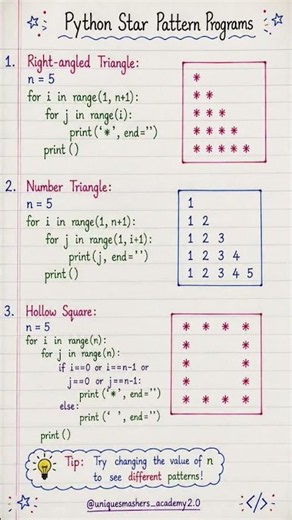 Python Star Pattern Programs
1. Right-angled Triangle:
n = 5
for i in range(1, n+1):
for j in range(i):
print('*', end='')
print()
*
* *
* * *
* * * *
* * * * *
2. Number Triangle:
n = 5
for i in range(1, n+1):
for j in range(1, i+1):
print(j, end='')
print()
1
1 2
1 2 3
1 2 3 4
1 2 3 4 5
3. Hollow Square:
n = 5
for i in range(n):
for j in range(n):
if i==0 or i==n-1 or
j==0 or j==n-1:
print('*', end='')
else:
print(' ', end='')
print()
* * * *
* *
* *
* *
* * * *
Tip: Try changing the value of n
to see different patterns!
@uniquesmashers_academy2.0
</>